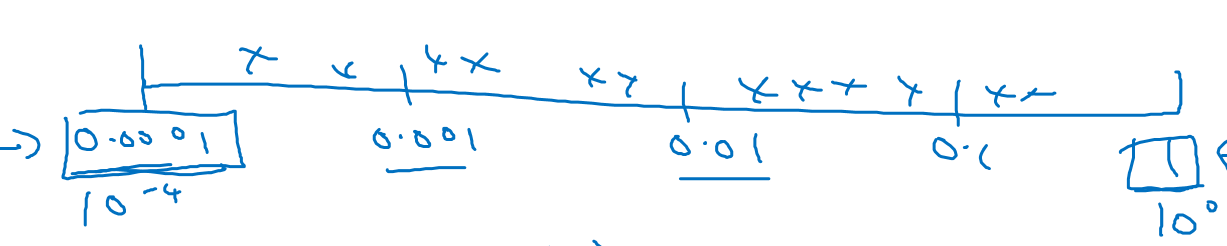 x x x x x x x x x x x x
0.0001 0.001 0.01 0.1 1
10⁻⁴ 10⁰